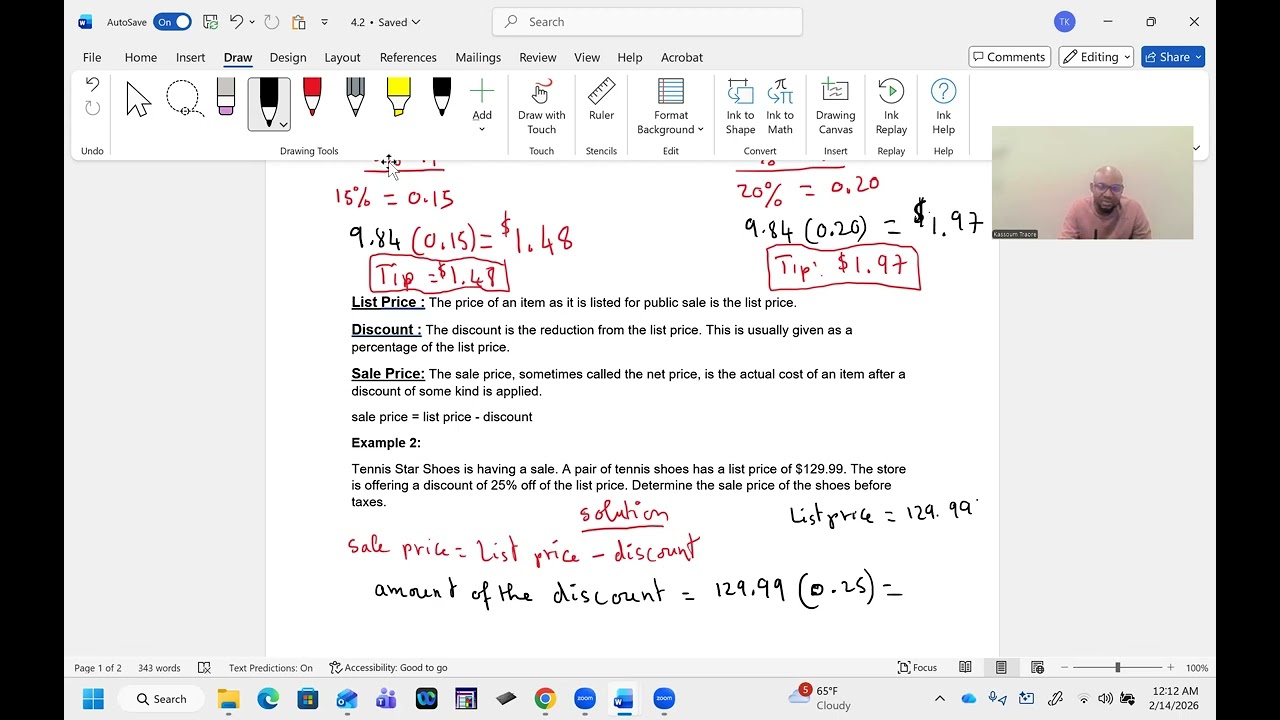 AutoSave On 4.2 • Saved Search TK
File Home Insert Draw Design Layout References Mailings Review View Help Acrobat Comments Editing Share
Undo
Add
Draw with Touch
Ruler
Format Background
Ink to Shape
Ink to Math
Drawing Canvas
Ink Replay
Ink Help
Undo Drawing Tools Touch Stencils Edit Convert Insert Replay Help
Kassoum Traore
15% = 0.15
20% = 0.20
9.84 (0.15) = $1.48
9.84 (0.20) = $1.97
Tip = $1.48
Tip: $1.97
List Price : The price of an item as it is listed for public sale is the list price.
Discount : The discount is the reduction from the list price. This is usually given as a
percentage of the list price.
Sale Price: The sale price, sometimes called the net price, is the actual cost of an item after a
discount of some kind is applied.
sale price = list price - discount
Example 2:
Tennis Star Shoes is having a sale. A pair of tennis shoes has a list price of $129.99. The store
is offering a discount of 25% off of the list price. Determine the sale price of the shoes before
taxes.
solution
List price = 129.99
sale price = List price - discount
amount of the discount = 129.99 (0.25) =
Page 1 of 2 343 words Text Predictions: On Accessibility: Good to go Focus 100%
Search zoom zoom 5 65°F 12:12 AM
Cloudy 2/14/2026